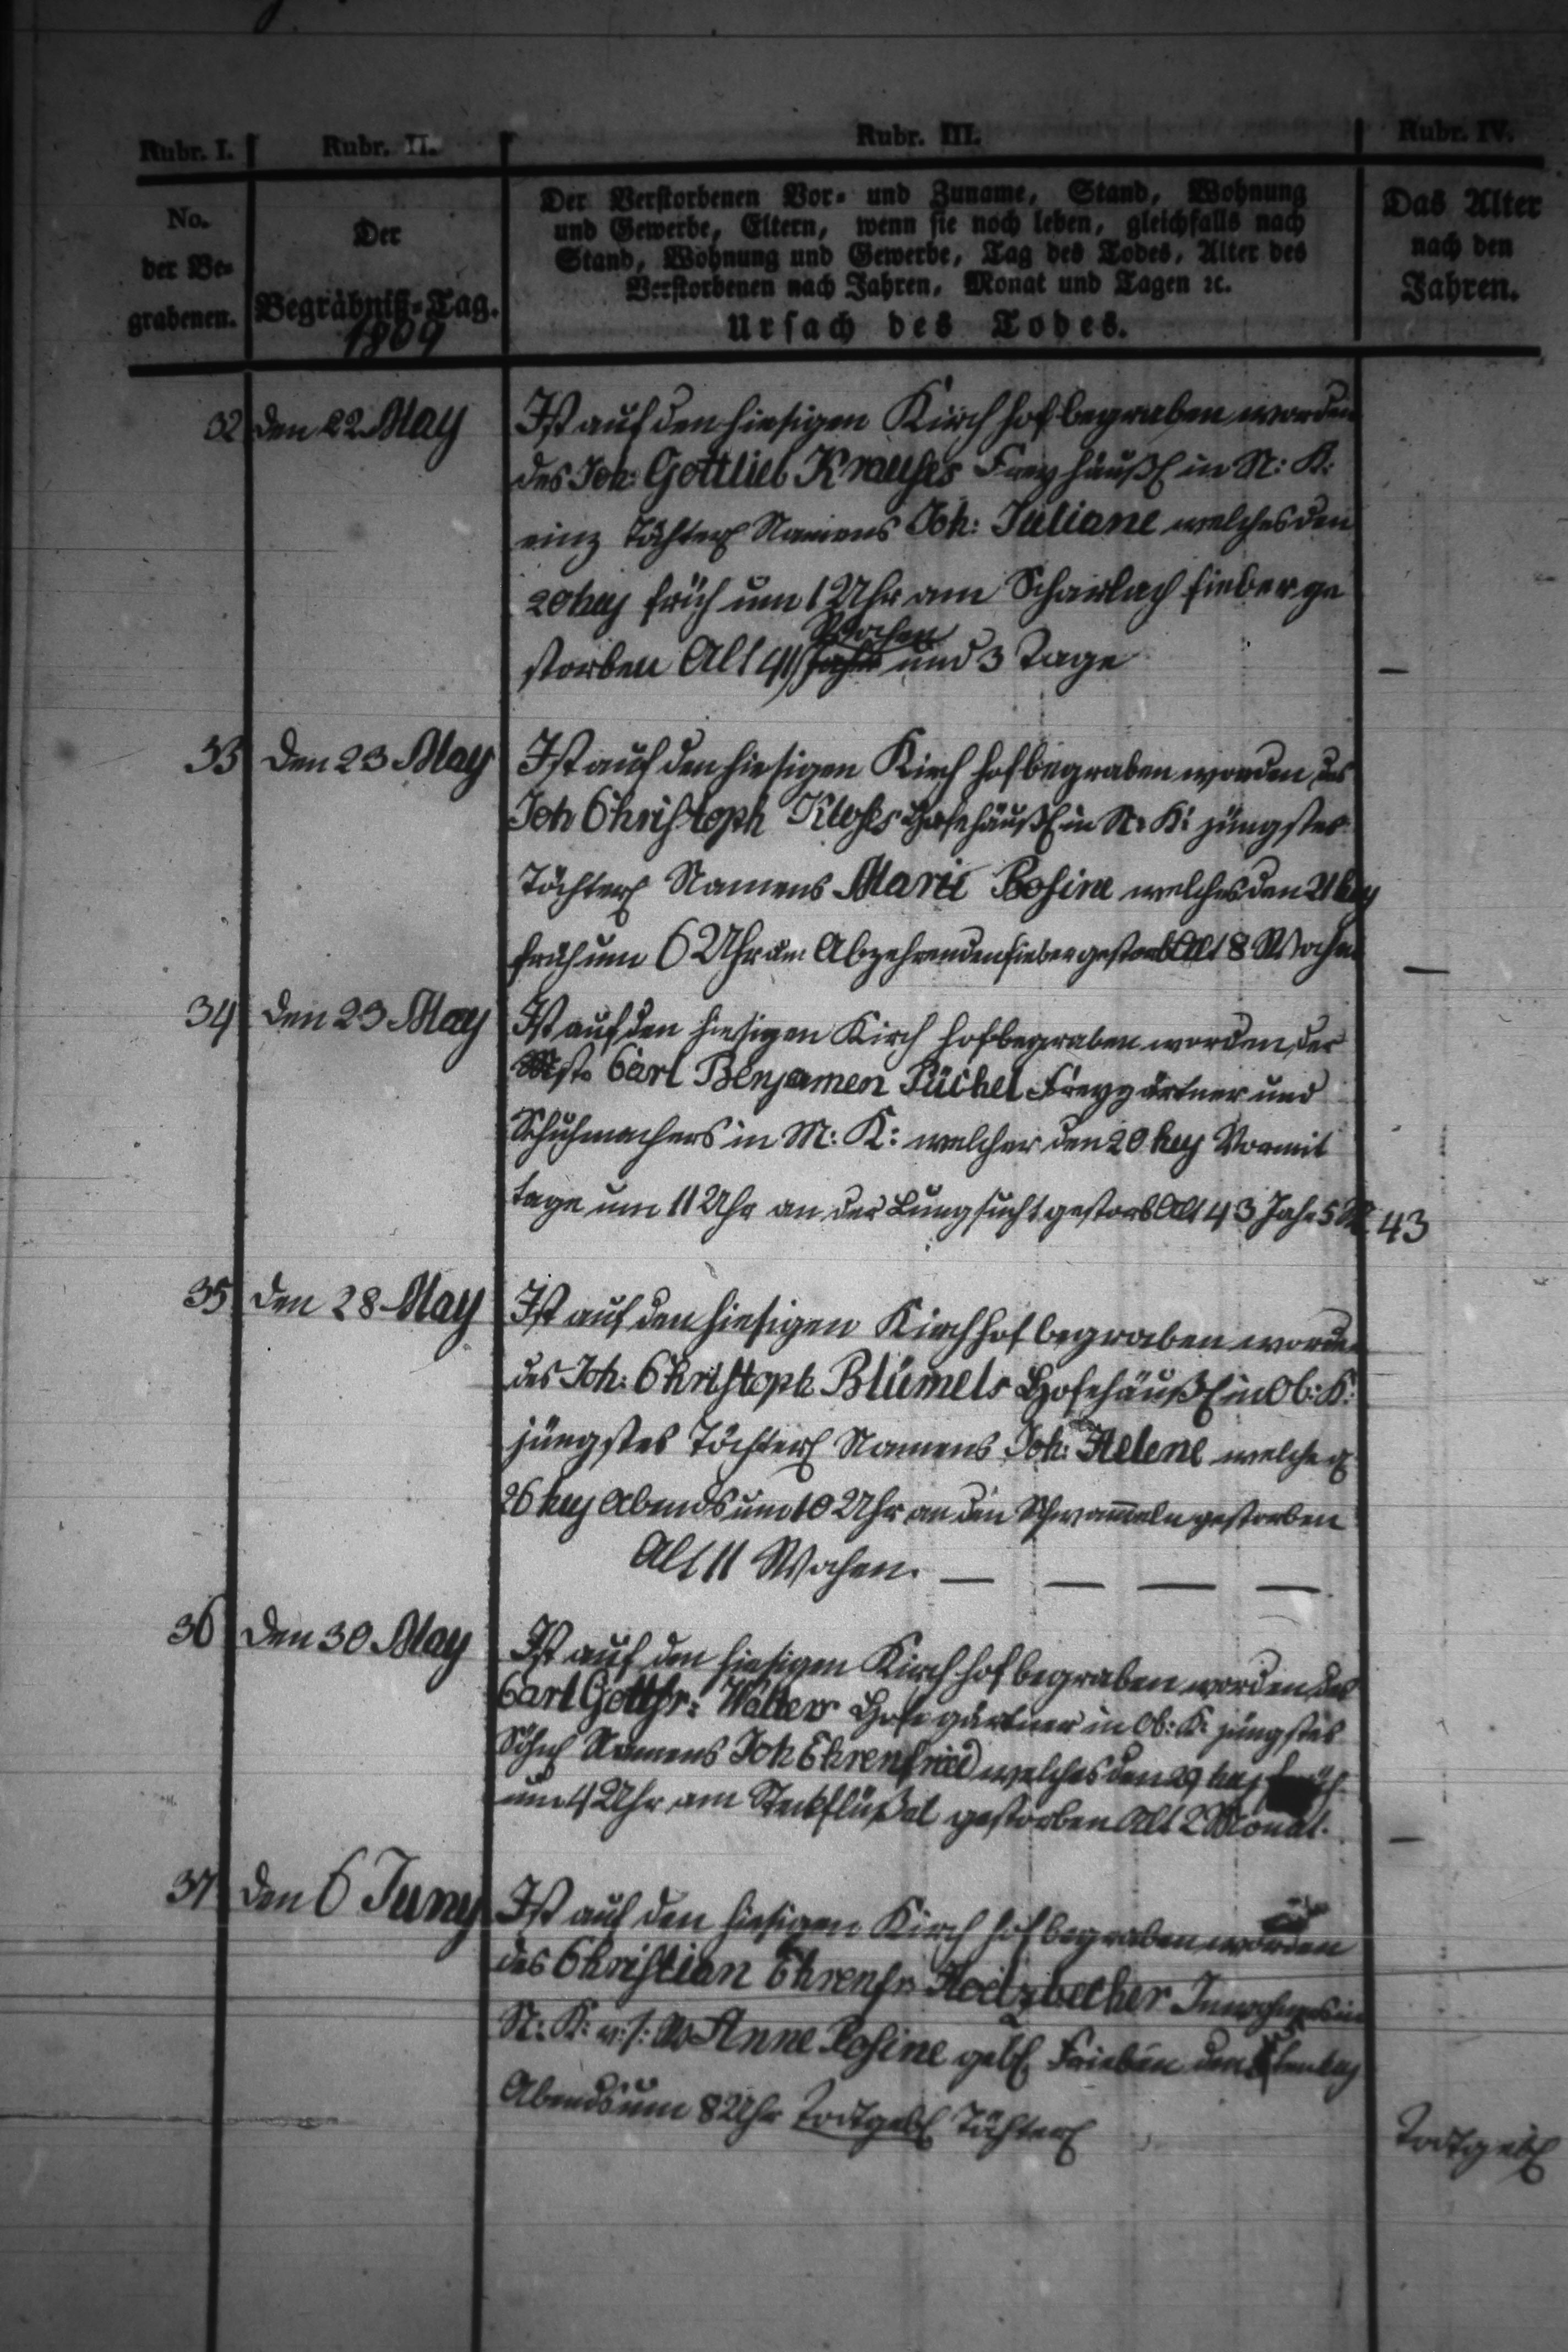 Rubr. I. Rubr. II. Rubr. III. Rubr. IV.
No.
der Be-
grabenen.
Der
Begräbniß-Tag.
1809
Der Verstorbenen Vor- und Zuname, Stand, Wohnung
und Gewerbe, Eltern, wenn sie noch leben, gleichfalls nach
Stand, Wohnung und Gewerbe, Tag des Todes, Alter des
Verstorbenen nach Jahren, Monat und Tagen ꝛc.
Ursach des Todes.
Das Alter
nach den
Jahren.
32 den 22 May Ist auf den hiesigen Kirch hof begraben worden
des Joh: Gottlieb Krauses Freyhäußl in N: K:
einz Töchterl Namens Joh: Juliane welches den
20 huj früh um 1 Uhr am Scharlach fieber ge
storben Alt 41 Wochen und 3 Tage —
33 den 23 May Ist auf den hiesigen Kirch hof begraben worden des
Joh Christoph Kloses Hofehäußl in N: K: jüngstes
Töchterl Namens Marie Rosine welches den 21 huj
früh um 6 Uhr am Abzehrenden fieber gestorb Alt 8 Wochen —
34 den 23 May Ist auf den hiesigen Kirch hof begraben worden, der
Mstr Carl Benjamen Püchel Freygärtner und
Schuhmachers in M: K: welcher den 20 huj Vormit
tags um 11 Uhr an der Lungsucht gestorb Alt 43 Jahr 5 M. 43
35 den 28 May Ist auf den hiesigen Kirch hof begraben worden
des Joh: Christoph Blümels Hofehäußl in Ob: K:
jüngstes Töchterl Namens Joh: Helene welche
26 huj Abends um 10 Uhr an den Schwam̄eln gestorben
Alt 11 Wochen. — — — —
36 den 30 May Ist auf den hiesigen Kirch hof begraben worden des
Carl Gottfr: Walters Hofegärtner in Ob: K: jüngstes
Söhnl Namens Joh Ehrenfried welches den 29 huj früh
um 4 Uhr am Steckflüßel gestorben Alt 2 Monat. —
37 den 6 Juny Ist auf den hiesigen Kirch hof begraben worden
des Christian Ehrenfr Inwohners in
N: K: Anne Rosine gebl Frieben den huj
Abends um 8 Uhr Todtgebl Töchterl Todtgebl